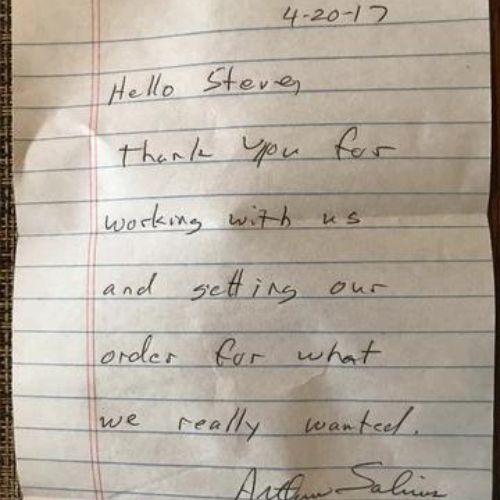 4-20-17
Hello Steven
thank you for
working with us
and getting our
order for what
we really wanted.
Arthur